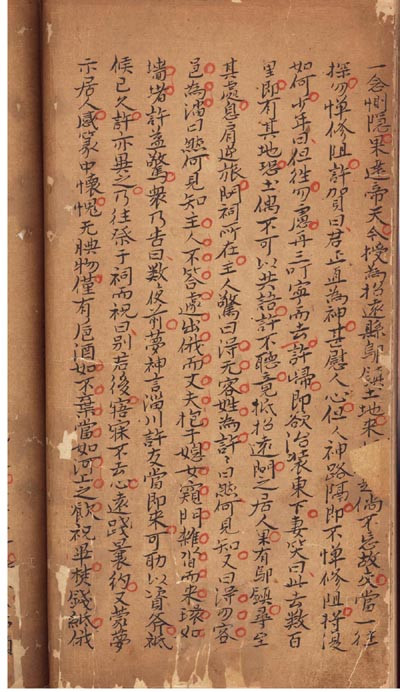 一念惻隱果達帝天今授為招遠縣鄔鎮土地來倘不忘故交當一往
探勿憚修阻許賀曰君正直為神甚慰人心但人神路隔即不憚修阻將復
如何少年曰但往勿慮再三叮寧而去許歸即欲治裝東下妻笑曰此去數百
里即有其地恐土偶不可以共語許不聽竟抵招遠問之居人果有鄔鎮尋至
其處息肩逆旅問祠所在主人驚曰得无客姓為許々曰然何見知又曰得勿客
邑為淄曰然何見知主人不答遽出俄而丈夫抱子媳女窺門雜沓而來環如
墻堵許益驚衆乃告曰數夜前夢神言淄川許友當即來可助以資斧祇
候已久許亦異之乃往祭于祠而祝曰別君後寤寐不去心遠踐曩約又蒙夢
示居人感篆中懷愧无腆物僅有卮酒如不棄當如河上之飲祝畢焚錢紙俄